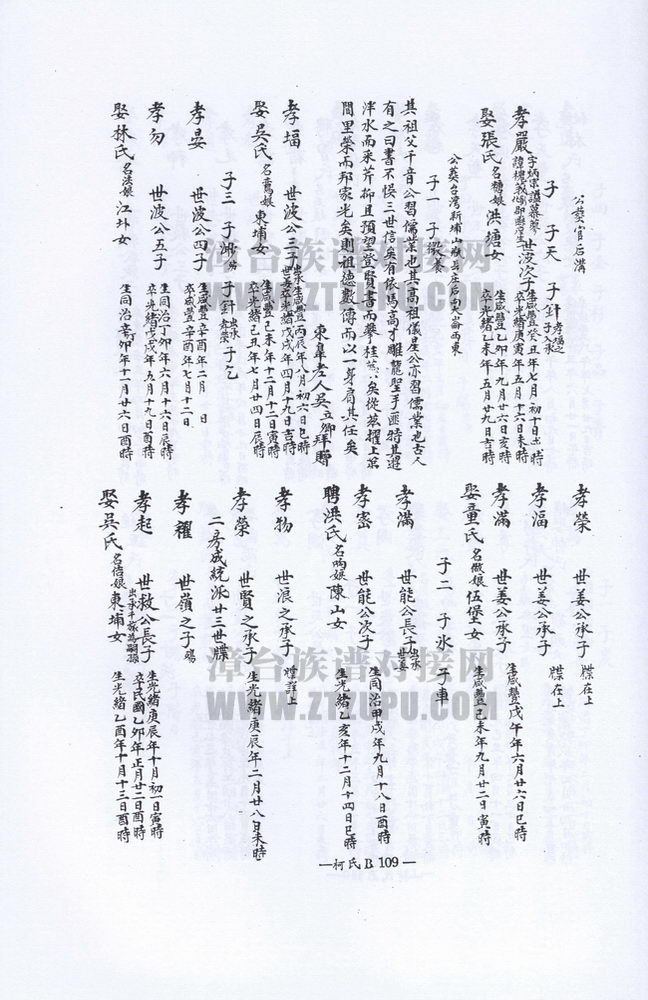 公葬官后溝
子 子天 子針
孝嚴 世波次子 生咸豐癸丑年七月初十日出時 卒光緒庚寅年五月十六日未時
娶張氏 名糖娘 洪塘女 生咸豐乙卯年九月廿六日亥時 卒光緒乙未年五月廿九日吉時
子一 子敬 養
其祖父千音公習儒業也其高祖儀星公亦習儒業也古人
有之曰書不悮三世信矣有依馬高才雕龍聖手匪特其遊
泮水而采芹抑且預望登賢書而攀桂 矣從茲擢上第
閭里榮而邦家光矣則祖德數傳而以一身肩其任矣
東皐老人吳立卿拜贈
孝福 世波公三子 生咸豐丙辰年八月初六日巳時 卒光緒戊戌年四月十九日吉時
娶吳氏 名鴦娘 東埔女 生咸豐己未年十二月十二日寅時 卒光緒己丑年七月廿四日辰時
子三 子洲 子針 出承孝嚴 子乞
孝晏 世波公四子 生咸豐辛酉年二月 日 卒咸豐辛酉年七月十二日
孝勿 世波公五子 生同治丁卯年六月十六日辰時 卒光緒戊戌年五月十九日酉時
娶林氏 名法娘 江圤女 生同治辛卯年十一月廿六日酉時
孝榮 世姜公承子 牒在上
孝湢 世姜公承子 牒在上
孝滿 世姜公承子 生咸豐戊午年六月廿六日巳時
娶童氏 名微娘 伍堡女 生咸豐己未年九月廿二日寅時
子二 子氷 子車
孝滿 世能公長子 出承世姜
孝密 世能公次子 生同治甲戌年九月十八日酉時
聘洪氏 名响娘 陳山女 生光緒乙亥年十二月十四日巳時
孝物 世浪之承子 牒詳上
孝榮 世賢之承子 生光緒庚辰年二月廿八日未時
二房成統派廿三世牒
孝穪 世嶺之子 殤
孝起 世教公長子 生光緒庚辰年十月初一日寅時 卒民國乙卯年正月廿二日酉時
娶吳氏 名信娘 東埔女 生光緒乙酉年十月十三日酉時
—柯氏B 109—
漳台族谱对接网
WWW.ZTZUPU.COM
漳台族谱对接网
WWW.ZTZUPU.COM